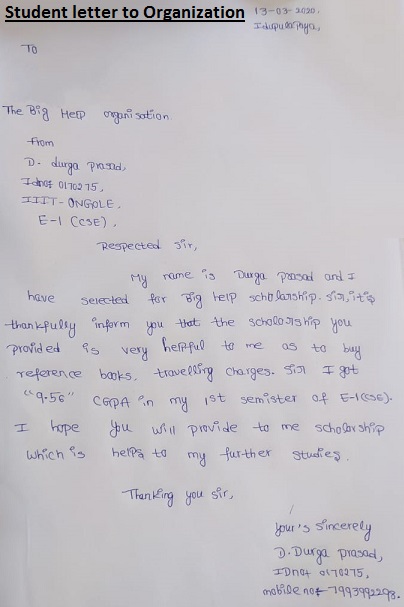 Student letter to Organization
13-03-2020,
Idupulapaya,
To
The Big Help organisation.
from
D. durga prasad,
Idno: 0170275,
IIIT-ONGOLE.
E-1 (CSE),
Respected Sir,
My name is Durga prasad and I
have selected for Big help scholarship. Sir, it is
thankfully inform you that the scholorship you
provided is very helpful to me as to buy
reference books, travelling charges. Sir I got
"9.56" CGPA in my 1st semister of E-1(CSE).
I hope you will provide to me scholorship
which is helps to my further studies.
Thanking you sir,
your's sincerely
D. Durga prasad,
IDno: 0170275,
mobile no: 7993992298.